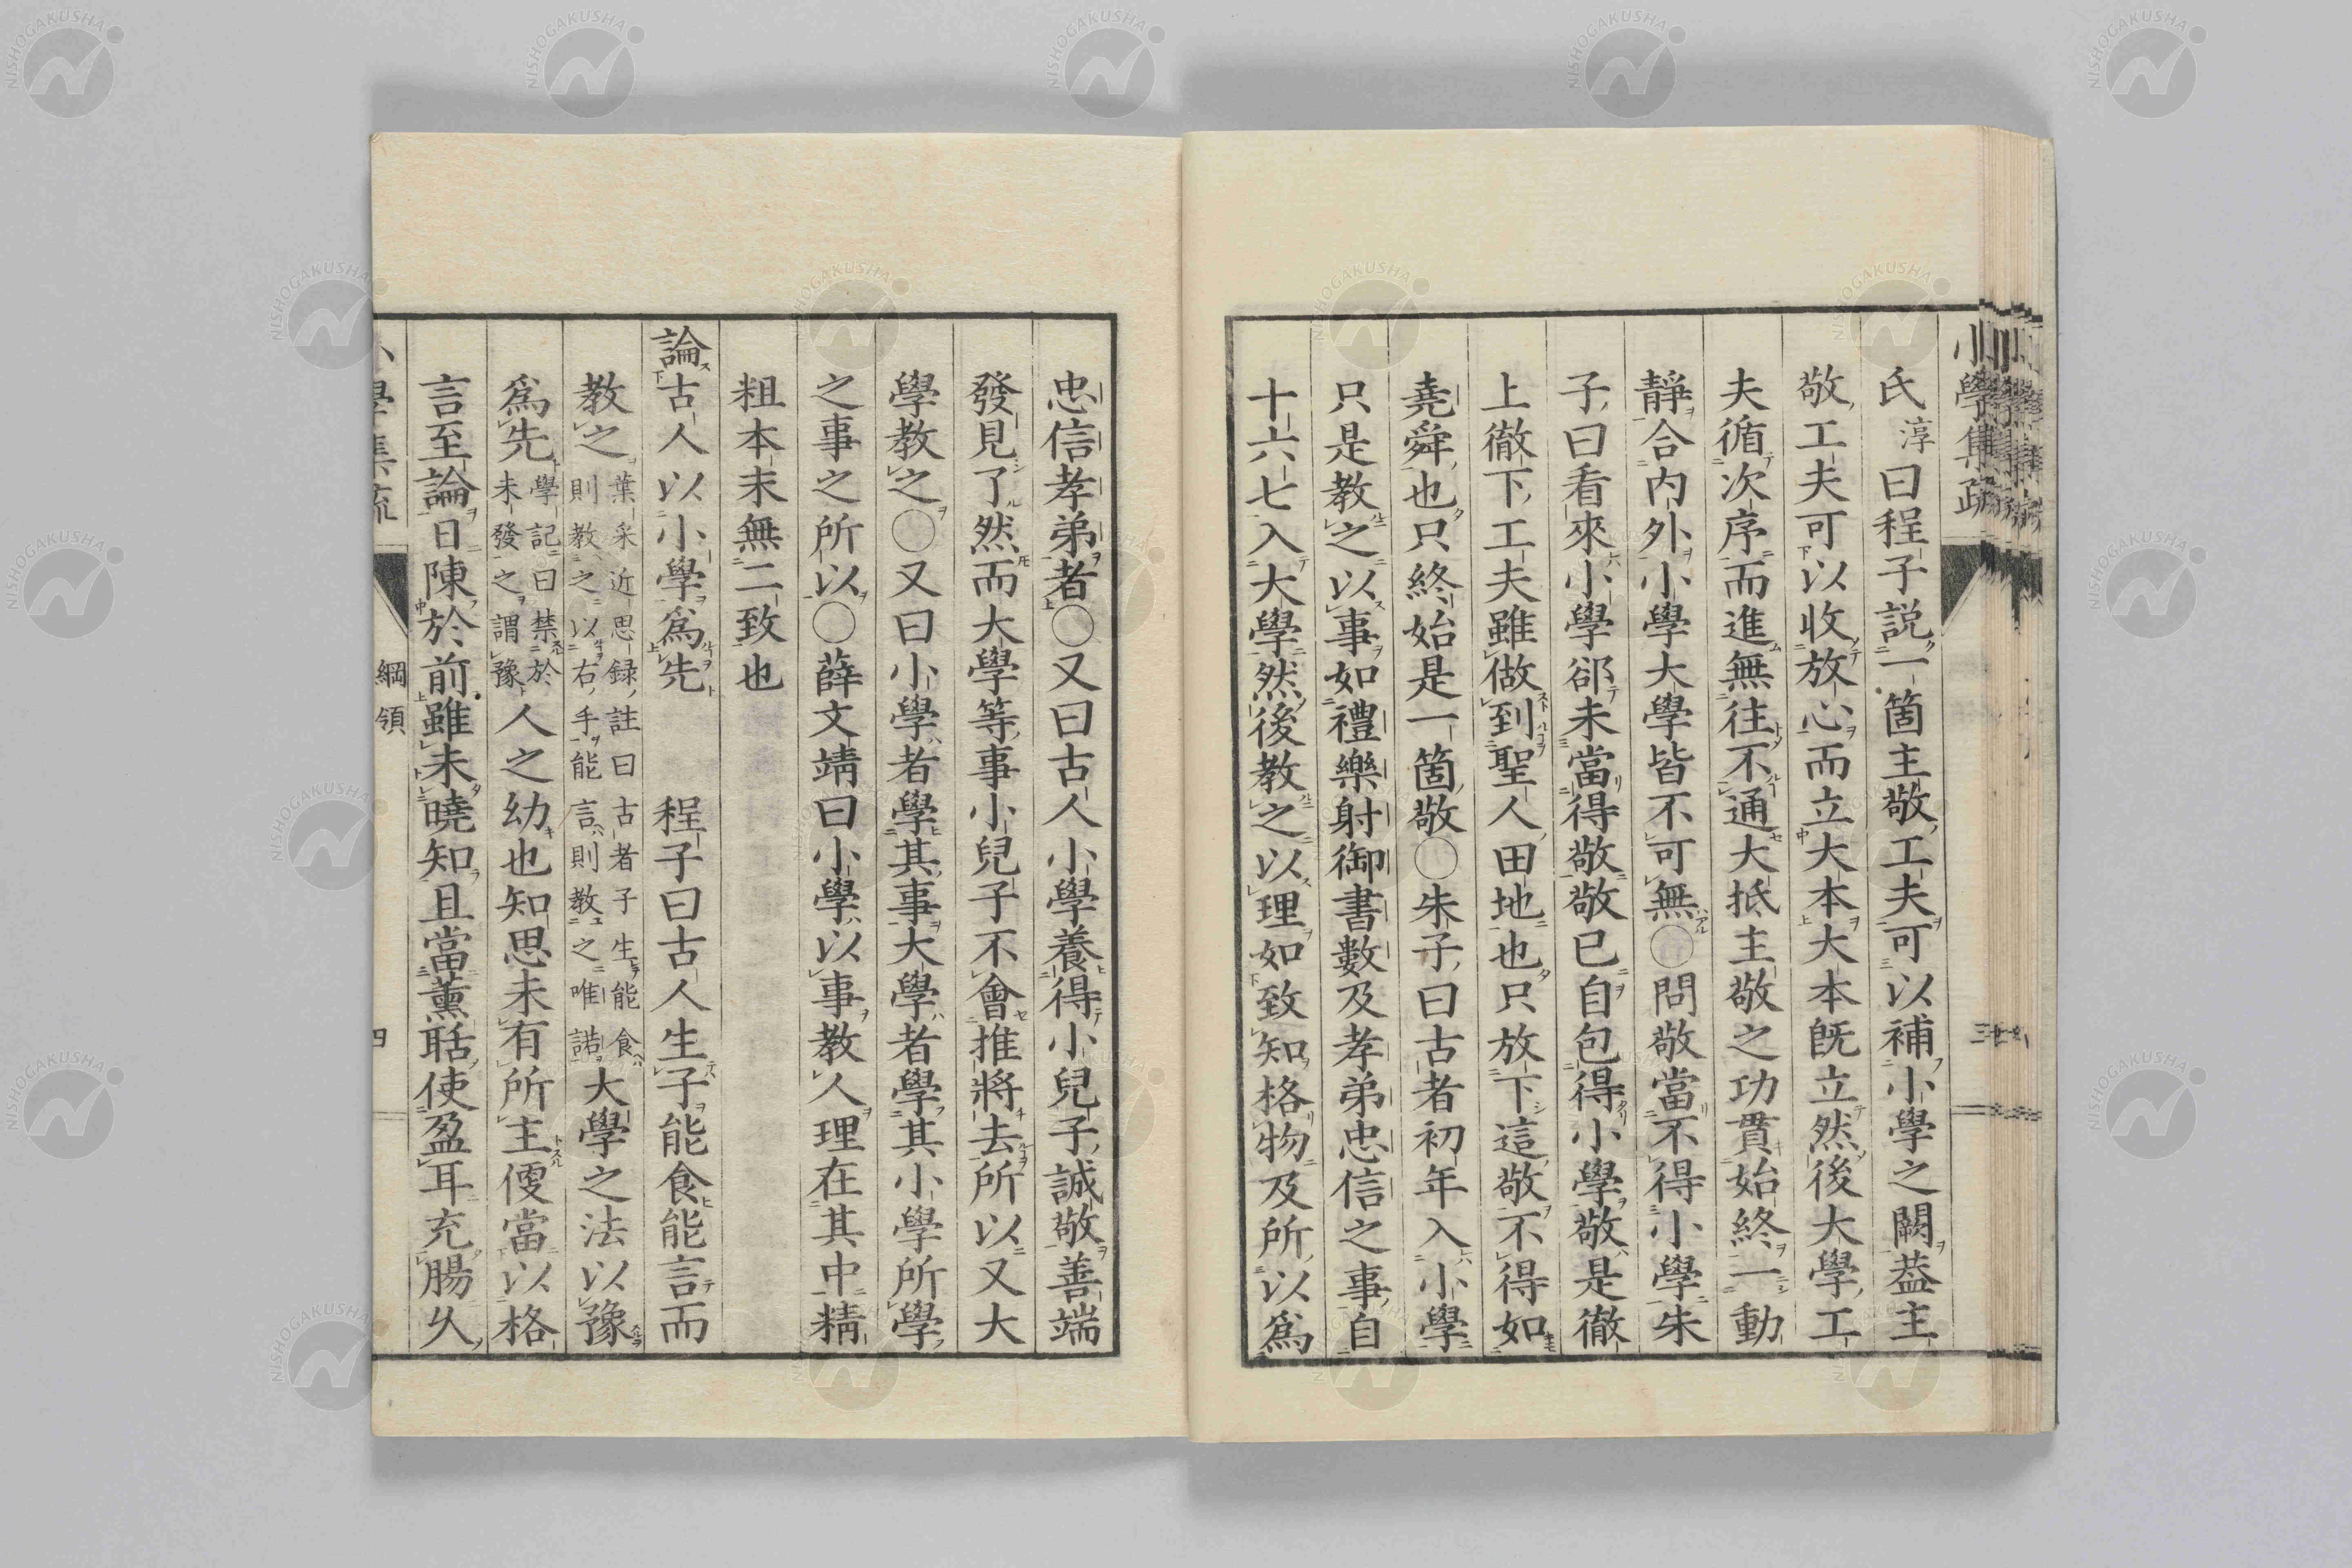 氏淳曰程子説一箇主敬工夫可以補小學之闕蓋主
敬工夫可以收放心而立大本大本既立然後大學工
夫循次序而進無往不通大抵主敬之功貫始終一動
靜合内外小學大學皆不可無〇問敬當不得小學朱
子曰看來小學卻未當得敬敬已自包得小學敬是徹
上徹下工夫雖做到聖人田地也只放下這敬不得如
堯舜也只終始是一箇敬〇朱子曰古者初年入小學
只是教之以事如禮樂射御書數及孝弟忠信之事自
十六七入大學然後教之以理如致知格物及所以爲
忠信孝弟者〇又曰古人小學養得小兒子誠敬善端
發見了然而大學等事小兒子不會推將去所以又大
學教之〇又曰小學者學其事大學者學其小學所學
之事之所以〇薛文靖曰小學以事教人理在其中精
粗本末無二致也
論古人以小學爲先　程子曰古人生子能食能言而
教之葉采近思録註曰古者子生能食則教之以右手能言則教之唯諾大學之法以豫
爲先學記曰禁於未發之謂豫人之幼也知思未有所主便當以格
言至論日陳於前雖未曉知且當薰聒使盈耳充腸久
小學集疏
綱領
四
NISHOGAKUSHA